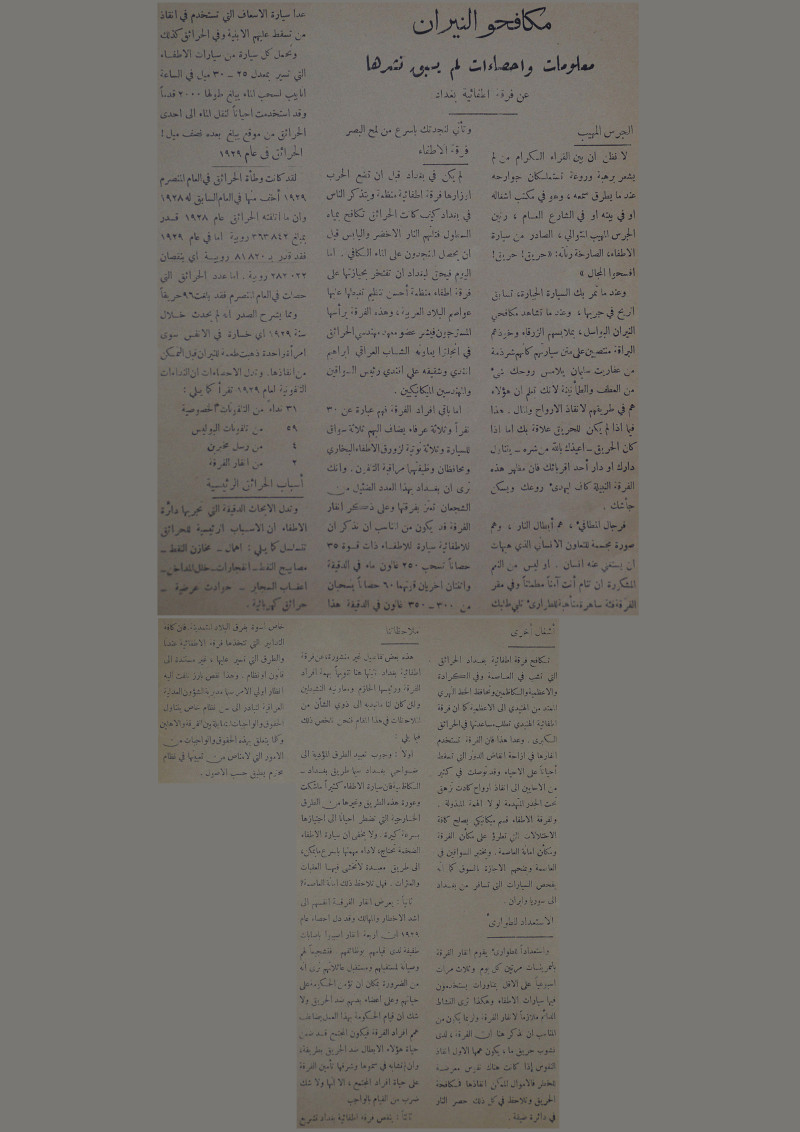 مكافحو النيران
معلومات واحصاءات لم يسبق نشرها
عن فرقة اطفائية بغداد
الجرس المهيب
لا نظن ان بين القراء الكرام من لم
يشعر برهبة وروعة تستملكان جوارحه
عند ما يطرق سمعه ، وهو في مكتب اشغاله
او في بيته او في الشارع العام ، رنين
الجرس المهيب المتوالي ، الصادر من سيارة
الاطفاء، الصارخة رناته: «حريق! حريق!
افسحوا المجال »
وعند ما تمر بك السيارة الجبارة، تسابق
الريح في جريها ، وعند ما تشاهد مكافحي
النيران البواسل ، بملابسهم الزرقاء وخوذهم
البراقة منتصبين على متن سيارتهم كأنهم شرذمة
من عفاريت سليمان يلامس روحك شيء
من العطف والطمأنينة لانك تعلم ان هؤلاء
هم في طريقهم لانقاذ الارواح والمال . هذا
فيما اذا لم يكن للحريق علاقة بك اما اذا
كان الحريق ـ اعيذك بالله من شره ـ يتناول
دارك او دار أحد اقربائك فان مظهر هذه
الفرقة النبيلة كاف ليهدئ روعك ويسكن
جأشك .
فرجال المطافيء ، هم أبطال النار ، وهم
صورة مجسمة للتعاون الانساني الذي هيهات
ان يستغني عنه انسان . او ليس من النعم
المشكورة ان تنام أنت آمناً مطمئناً وفي مقر
الفرقة فئة ساهرة متأهبة للطواريء تلبي طلبك
وتأتي لنجدتك باسرع من لمح البصر
فرقة الاطفاء
لم يكن في بغداد قبل ان تضع الحرب
اوزارها فرقة اطفائية منظمة ويتذكر الناس
في بغداد كيف كانت الحرائق تكافح بمياه
السطول فتلتهم النار الاخضر واليابس قبل
ان يحصل المنجدون على الماء الكافي . اما
اليوم فيحق لبغداد ان تفتخر بحيازتها على
فرقة اطفاء منظمة أحسن تنظيم تغبطها عليها
عواصم البلاد العربية ، وهذه الفرقة يرأسها
المستر جون فيشر عضو معهد مهندسي الحرائق
في انجلترا يعاونه الشباب العراقي ابراهيم
افندي وشقيقه علي افندي رئيس السواقين
والمهندسين الميكانيكيين .
اما باقي افراد الفرقة فهم عبارة عن ٣٠
نفراً وثلاثة عرفاء يضاف اليهم ثلاثة سواق
للسيارة وثلاثة نوتية لزورق الاطفاء البخاري
ومحافظان وظيفتهما مراقبة التلفون . وانك
ترى ان بغداد بهذا العدد الضئيل من
الشجعان تعتز بفرقتها وعلى ذكر انفار
الفرقة قد يكون من المناسب ان نذكر ان
للاطفائية سيارة للاطفاء ذات قوة ٣٥
حصاناً تسحب ٢٥٠ غالون ماء في الدقيقة
واثنتان اخريان قوتهما ٦٠ حصاناً يسحبان
من ٣٠٠ ـ ٣٥٠ غالون في الدقيقة هذا
عدا سيارة الاسعاف التي تستخدم في انقاذ
من تسقط عليهم الابنية وفي الحرائق كذلك
وتحمل كل سيارة من سيارات الاطفاء
التي تسير بمعدل ٢٥ ـ ٣٠ ميل في الساعة
انابيب لسحب الماء يبلغ طولها ٢٠٠٠ قدماً
وقد استخدمت احياناً لنقل الماء الى احدى
الحرائق من موقع يبلغ بعده نصف ميل !
الحرائق في عام ١٩٢٩
لقد كانت وطأة الحرائق في العام المنصرم
١٩٢٩ أخف منها في العام السابق له ١٩٢٨
وان ما اتلفته الحرائق عام ١٩٢٨ قدر
بمبلغ ٣٦٣٨٤٢ روبية اما في عام ١٩٢٩
فقد قدر بـ ٨١٨٢٠ روبية اي بنقصان
٢٨٢٠٢٢ روبية . اما عدد الحرائق التي
حصلت في العام المنصرم فقد بلغت ٩٦ حريقاً
ومما يشرح الصدور انه لم يحدث خلال
سنة ١٩٢٩ اي خسارة في الانفس سوى
امرأة واحدة ذهبت طعمة للنيران قبل التمكن
من انقاذها. وتدل الاحصاءات ان النداءات
التلفونية لعام ١٩٢٩ نفراً كما يلي :
٣١ نداء من التلفونات الخصوصية
٥٩ من تلفونات البوليس
٤ من رسل مخبرين
٢ من انفار الفرقة
أسباب الحرائق الرئيسية
وتدل الابحاث الدقيقة التي تجريها دائرة
الاطفاء ان الاسباب الرئيسية للحرائق
تتسلسل كما يلي : اهمال ـ مخازن النفط ـ
مصابيح النفط ـ انفجارات ـ خلل المداخن ـ
اعقاب السجاير ـ حوادث عرضية ـ
حرائق كهربائية .
أشغال أخرى
تكافح فرقة اطفائية بغداد الحرائق
التي تشب في العاصمة وفي الكرادة
والاعظمية والكاظمين وتحافظ الخط النهري
الممتد من الهنيدي الى الاعظمية كما ان فرقة
اطفائية الهنيدي تطلب مساعدتها في الحرائق
الكبرى . وعدا هذا فان الفرقة تستخدم
انفارها في ازاحة انقاض الدور التي تسقط
أحياناً على الاحياء وقد توصلت في كثير
من الاحايين الى انقاذ ارواح كادت تزهق
تحت الجدر المنهدمة لو لا الهمة المبذولة .
ولفرقة الاطفاء قسم ميكانيكي يصلح كافة
الاختلالات التي تطرق على مكائن الفرقة
ومكائن امانة العاصمة . وتختبر السواقين في
العاصمة وتمنحهم الاجازة بالسوق كما انه
يفحص السيارات التي تسافر من بغداد
الى سوريا وايران .
الاستعداد للطواريء
واستعداداً للطواريء يقوم انفار الفرقة
بالتمرينات مرتين كل يوم وثلاث مرات
اسبوعياً على الاقل بمناورات يستخدمون
فيها سيارات الاطفاء وهكذا ترى النشاط
الدائم ملازماً لانفار الفرقة. ولربما يكون من
المناسب ان نذكر هنا ان الفرقة ، لدى
نشوب حريق ما ، يكون همها الاول انقاذ
النفوس إذا كانت هنالك نفوس معرضة
للخطر فالاموال الممكن انقاذها فمكافحة
الحريق وتلاحظ في كل ذلك حصر النار
في دائرة ضيقة .
ملاحظاتنا
هذه بعض تفاصيل غير منشورة عن فرقة
اطفائية بغداد اثبتناها هنا تنويهاً بهمة افراد
الفرقة ورئيسها الحازم ومعاونيه النشيطين
ولئن كان لنا ما نبديه الى ذوي الشأن من
الملاحظات في هذا المقام فنحن نلخص ذلك
فيما يلي :
اولا : وجوب تعبيد الطرق المؤدية الى
ضواحي بغداد سيما طريق بغداد ـ
الكاظمية فان سيارة الاطفاء كثيراً ما شكت
وعورة هذه الطريق وغيرها من الطرق
الخارجية التي تضطر احيانا الى اجتيازها
بسرعة كبيرة . ولا يخفى ان سيارة الاطفاء
الضخمة تحتاج، لاداء مهمتها باسرع ما يمكن،
الى طريق معبدة لا تخشى فيها العقبات
والعثرات . فهل تلاحظ ذلك امانة العاصمة؟
ثانياً : يعرض انفار الفرقة انفسهم الى
اشد الاخطار والمهالك وقد دل احصاء عام
١٩٢٩ ان اربعة انفار اصيبوا باصابات
طفيفة لدى قيامهم بوظائفهم. فتشجيعاً لهم
وصيانة لمستقبلهم ومستقبل عائلاتهم نرى انه
من الضرورة بمكان ان تؤمن الحكومة على
حياتهم وعلى اعضاء بدنهم ضد الحريق ولا
شك ان قيام الحكومة بهذا العمل يضاعف
همم افراد الفرقة فيكون المجتمع قد ضمن
حياة هؤلاء الابطال ضد الحريق بطريقة،
على حياة افراد المجتمع ، الا انها ولا شك
ضرب من القيام بالواجب
ثالثاً : ينقص فرقة اطفائية بغداد تشريع
خاص اسوة بفرق البلاد المتمدينة. فان كافة
التدابير التي تتخذها فرقة الاطفائية عندنا
والطرق التي تسير عليها ، غير مستندة الى
قانون او نظام . وهذا نقص بارز نلفت اليه
انظار اولي الامر سيما مديرية الشؤون العدلية
العراقية لتبادر الى سن نظام خاص يتناول
الحقوق والواجبات المتقابلة بين الفرقة والاهلين
وكما يتعلق بهذه الحقوق والواجبات من
الامور التي لا مناص من تعيينها في نظام
محترم يطبق حسب الاصول .